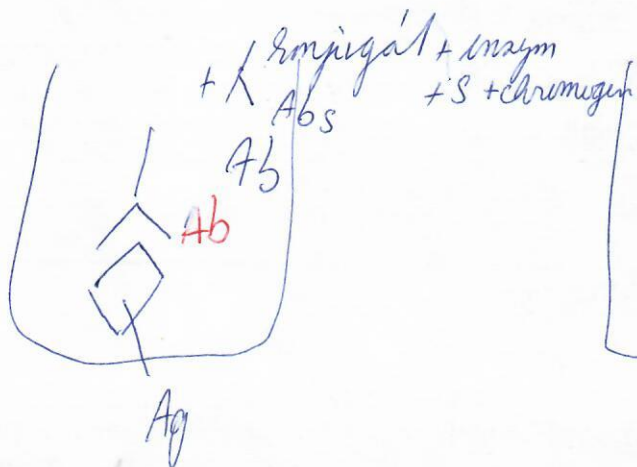 + konjugát + enzym
+ S + chromogen
Abs
Ab
Ab
Ag